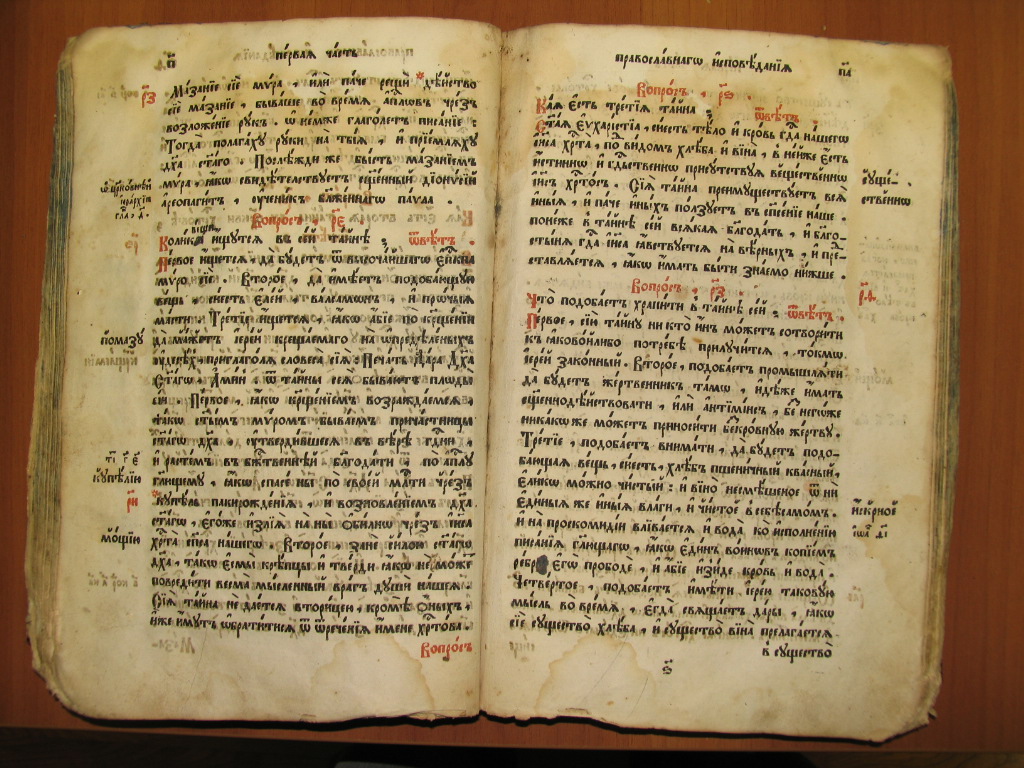 п҃
пе́рваѧ ча́сть
Мазанїе сїѐ мѵ́ра , и҆лѝ па́че рещѝ * дѣ́йство
сїѐ мазанїе , бываше во времѧ а҆п҇лѡвъ чре́зъ
возложе́нїе рꙋкъ . ѡ҆ не́мже глаго́летъ писа́нїе :
Тогда̀ полага́хꙋ рꙋ́ки на тыѧ̀ , и҆ прїе́млѧхꙋ
дх҃а ст҃а́го . Послѣ́жди же бы́сть мазанїемъ
мѵ́ра , ꙗ҆́кѡ свидѣ́телствꙋетъ сщ҃е́нный дїонѵ́сїй
а҆реопаги́тъ , ᲂу҆чени́къ бл҃же́ннагѡ па́ѵла .
ѡ҆ цр҃ко́внѣй
і҆ера́рхїи
гла̀ . д҃ .
Вопро́съ р҃е
вїѡ
Коли́ка и҆́щꙋтсѧ въ се́й та́йнѣ ; ѿвѣ́тъ .
Пе́рвое и҆́щетсѧ , да бꙋ́детъ ѿ высоча́йшагѡ є҆п҇кпа
мѵ́ро сїѐ . Второ́е , да и҆мѣ́етъ подоба́ющꙋю
ве́щь , си́есть є҆ле́й , валса́мѡнъ , и҆ прѡ́чыѧ
ма́сти . Тре́тїе и҆́щетсѧ , ꙗ҆́кѡ а҆́бїе по кр҃ще́нїи
да ма́жетъ і҆ере́й кр҃ща́емаго на ѡ҆предѣле́ныхъ
ᲂу҆́дѣхъ , приглаго́лѧ словеса̀ сїѧ̀ : Печа́ть Да́ра Дх҃а
Ст҃а́гѡ , А҆ми́нь . ѿ та́йны сеѧ̀ быва́ютъ плоды̀
сі́и . Пе́рвое , ꙗ҆́кѡ кр҃ще́нїемъ возражда́емсѧ ,
та́кѡ ст҃ы́мъ мѵ́ромъ быва́емъ прича́стницы
ст҃а́гѡ дх҃а , ᲂу҆тверди́вшесѧ въ вѣ́рѣ гд҇ни ,
и҆ расте́мъ въ бж҇твеннѣй благода́ти по а҆п҇лꙋ
гл҃ющемꙋ , ꙗ҆́кѡ сп҃сѐ на́съ по свое́й мл҇ти чре́зъ
* кꙋпѣ́ль пакирожде́нїѧ , и҆ возновле́нїемъ дх҃а
ст҃а́гѡ , є҆го́же и҆злїѧ̀ на ны̀ ѻ҆би́лнѡ чре́зъ і҆и҃са
хр҇та̀ сп҃са на́шегѡ . Второ́е , занѐ си́лою ст҃а́гѡ
дх҃а , та́кѡ є҆смы̀ крѣ́пцы и҆ тве́рди ꙗ҆́кѡ не мо́же
повреди́ти весма̀ мы́сленный вра́гъ дꙋшѝ на́шеѧ .
Сїѧ̀ та́йна не дае́тсѧ втори́цею , кромѣ̀ ѻ҆́ныхъ ,
и҆̀же и҆́мꙋтъ ѡ҆брати́тисѧ ѿ ѿрече́нїѧ и҆́мене хр҇то́ва .
Вопро́съ
помазꙋ
кꙋпѣ́лїю
мо́щїю
правосла́внагѡ и҆сповѣ́данїѧ
п҃а
Вопро́съ , р҃ѕ .
Ка́ѧ є҆́сть тре́тїѧ та́йна ; ѿвѣ́тъ
Ст҃а́ѧ є҆ѵхарі́стїа , си́есть тѣ́ло и҆ кро́вь гд҇а на́шегѡ
і҆и҃са хр҇та̀ , по ви́домъ хлѣ́ба и҆ вїна̀ , в не́йже є҆́сть
и҆́стиннѡ и҆ гд҇ственнѡ прису́тствꙋѧ веще́ственнѡ
і҆и҃съ хр҇то́съ . Сїѧ̀ та́йна преимꙋ́ществꙋетъ всѧ̀
и҆ны́ѧ , и҆ па́че и҆ны́хъ по́лзꙋетъ въ сп҃се́нїе на́ше .
поне́же в та́йнѣ се́й всѧ́каѧ бл҃года́ть , и҆ бл҃го-
сты́нѧ гд҇а і҆и҃са ꙗ҆́вствꙋетсѧ на вѣ́рныхъ , и҆ пре-
ставлѧ́етсѧ , ꙗ҆́кѡ и҆́мать бы́ти зна́емо ни́жше .
сꙋще́-
ственнѡ
Вопро́съ , р҃з .
Что̀ подоба́етъ храни́ти в та́йнѣ се́й ; ѿвѣ́тъ .
Пе́рвое , сїю̀ та́йнꙋ никто̀ и҆́нъ мо́жетъ сотвори́ти
къ како́войлибо потре́бѣ прилꙋчи́тсѧ , то́кмѡ
і҆ере́й зако́нный . Второ́е , подоба́етъ промышлѧ́ти
да бꙋ́детъ же́ртвенникъ та́мѡ , и҆дѣ́же и҆́мать
сщ҃еннодѣ́йствовати , и҆лѝ а҆нтїми́нсъ , бе́ негѡ́же
ника́кѡже мо́жетъ приноси́ти безкро́внꙋю же́ртвꙋ .
Тре́тїе , подоба́етъ внима́ти , да бꙋ́детъ подо-
ба́ющаѧ ве́щь , си́есть , хлѣ́бъ пшени́чный ква́сный ,
є҆ли́кѡ мо́жно чи́стый : и҆ вїно̀ несмѣ́шеное ѿ ни
є҆ди́ныѧ же и҆ны́ѧ вла́ги , и҆ чи́стое в себѣ̀ само́мъ .
и҆ на проскоми́дїи влива́етсѧ и҆ вода̀ ко и҆сполне́нїю
писа́нїѧ гл҃ющагѡ , ꙗ҆́кѡ є҆ди́нъ во́инѡвъ копїе́мъ
ре́бра є҆гѡ̀ прободѐ , и҆ а҆́бїе и҆зы́де кро́вь и҆ вода̀ .
Четве́ртое , подоба́етъ и҆мѣ́ти і҆ере́ю такову́ю
мы́сль во вре́мѧ , є҆гда̀ свѧща́етъ да́ры , ꙗ҆́кѡ
сїѐ сꙋщество̀ хлѣ́ба , и҆ сꙋщество̀ вїна̀ прелага́етсѧ
в сꙋщество̀
и҆́скрное
і҆ѡа́ д҃і
ѕ҃